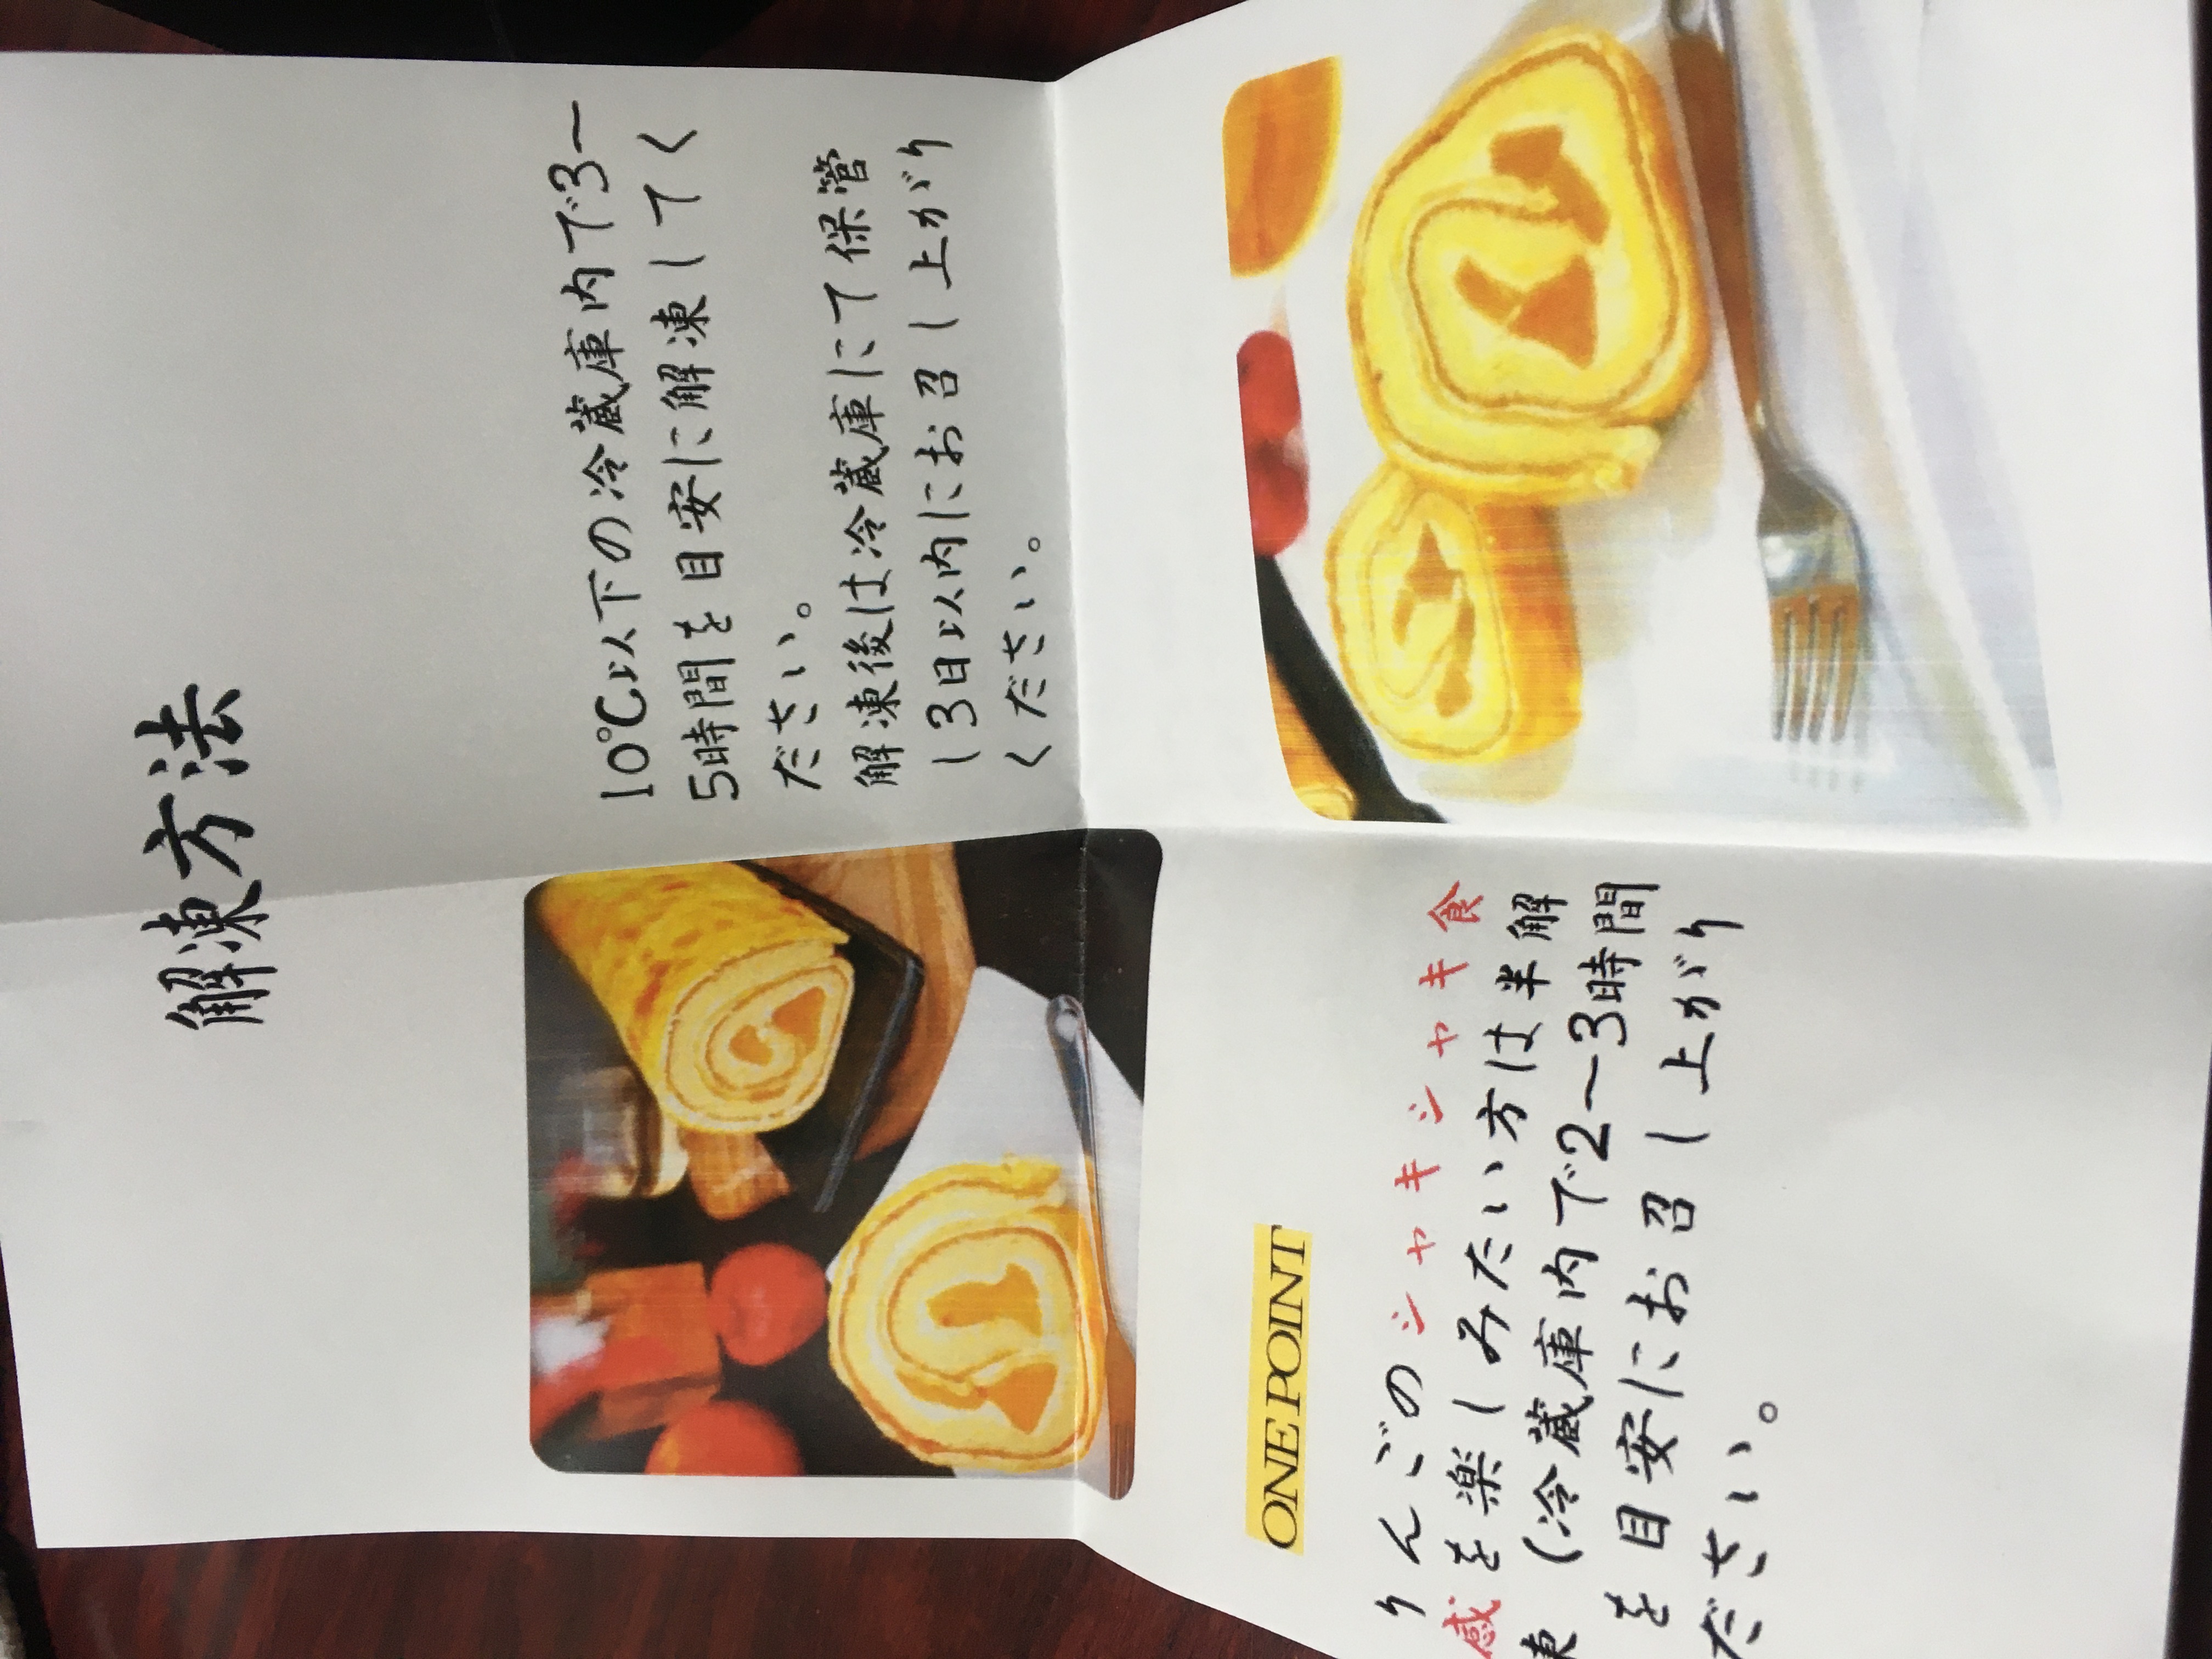 解凍方法
10℃以下の冷蔵庫内で3〜
5時間を目安に解凍してく
ださい。
解凍後は冷蔵庫にて保管
し3日以内にお召し上がり
ください。
ONE POINT
りんごのシャキシャキ食
感を楽しみたい方は半解
凍(冷蔵庫内で2〜3時間
を目安にお召し上がり
ださい。